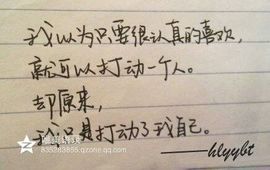 我以为只要很认真的喜欢,
就可以打动一个人。
却原来,
我只是打动了我自己。
——hlyybt
835283855.qzone.qq.com